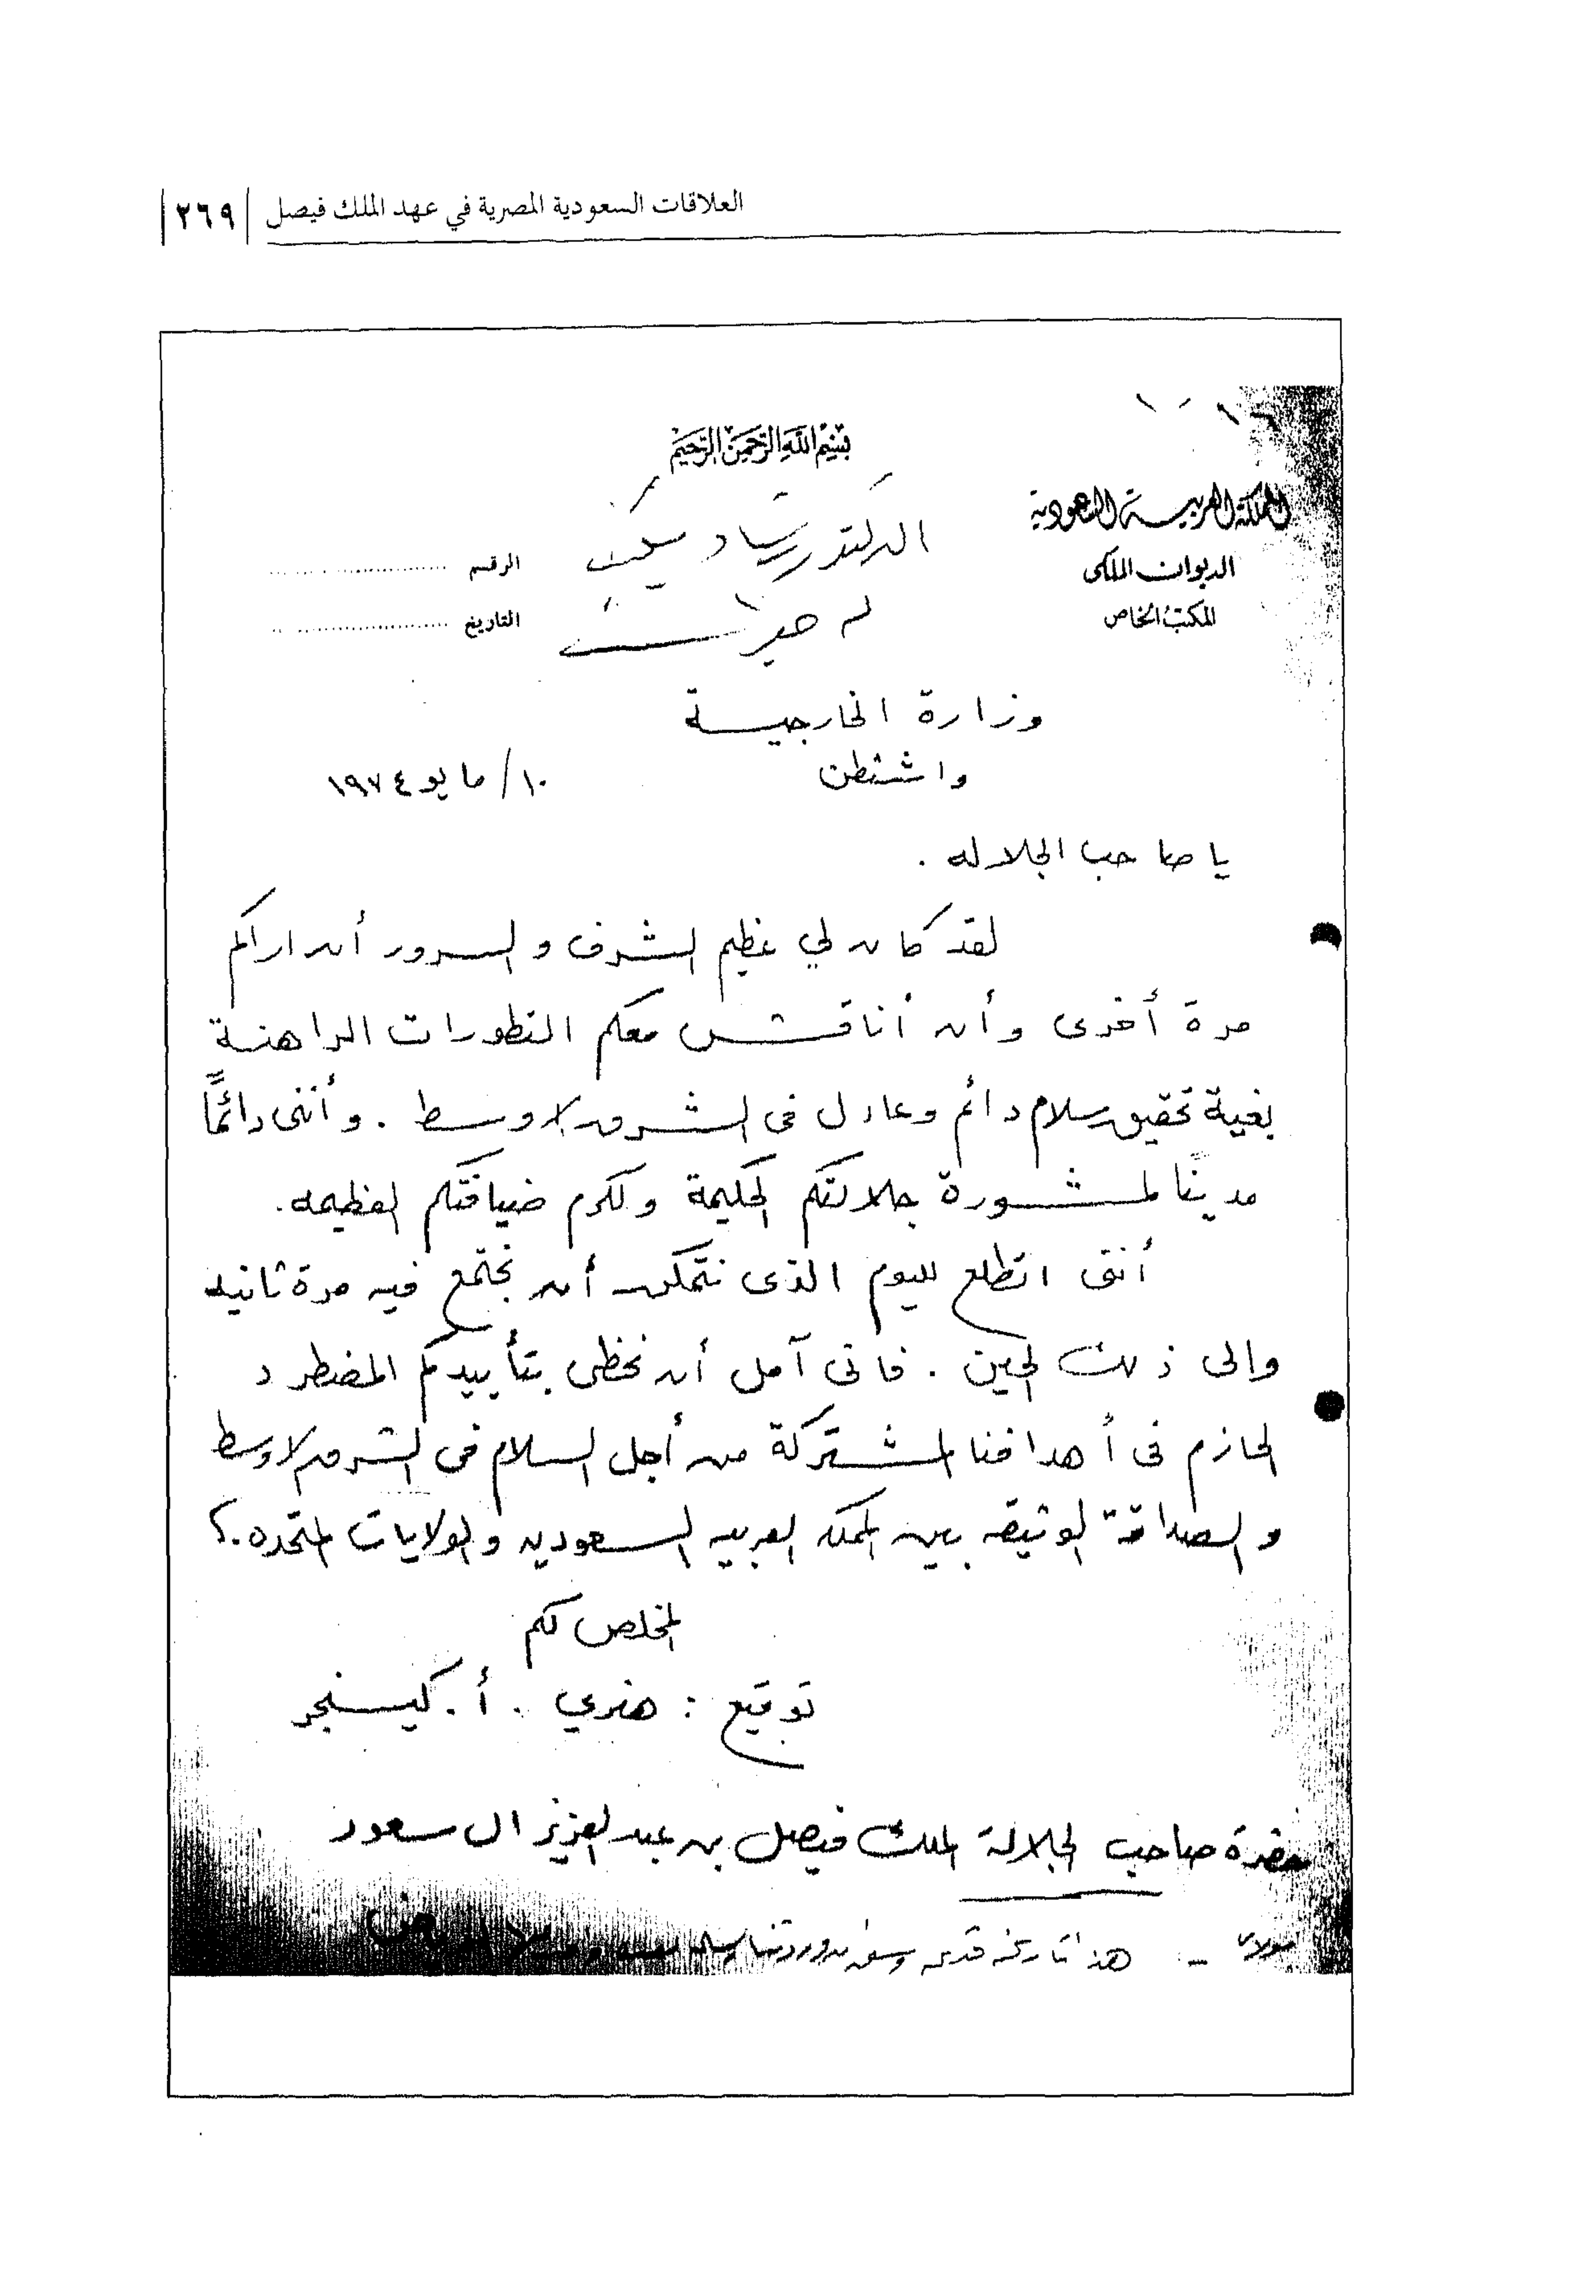 العلاقات السعودية المصرية في عهد الملك فيصل | ٢٦٩
بسم الله الرحمن الرحيم
المملكة العربية السعودية
الديوان الملكي
المكتب الخاص
الرقم
التاريخ
الدكتور رشاد
وزارة الخارجية
واشنطن
١٠/ مايو ١٩٧٤
يا صاحب الجلاله .
لقد كان لي عظيم الشرف والسرور أن اراكم
مرة أخرى وأن أناقش معكم التطورات الراهنة
بغية تحقيق سلام دائم وعادل في الشرق الاوسط . وأنني دائمًا
مدينًا لمشورة جلالتكم الحكيمة ولكرم ضيافتكم العظيمه .
أنني اتطلع لليوم الذى نتمكن أن نجتمع فيه مرة ثانيه
والى ذلك الحين . فانى آمل أن نحظى بتأييدكم المضطرد
الحازم فى أهدافنا المشتركة من أجل السلام فى الشرق الاوسط
والصداقة الوثيقه بين المملكه العربيه السعوديه والولايات المتحده .
المخلص لكم
توقيع : هنري . أ . كيسنجر
حضرة صاحب الجلالة الملك فيصل بن عبد العزيز ال سعود
مولاي - هذا